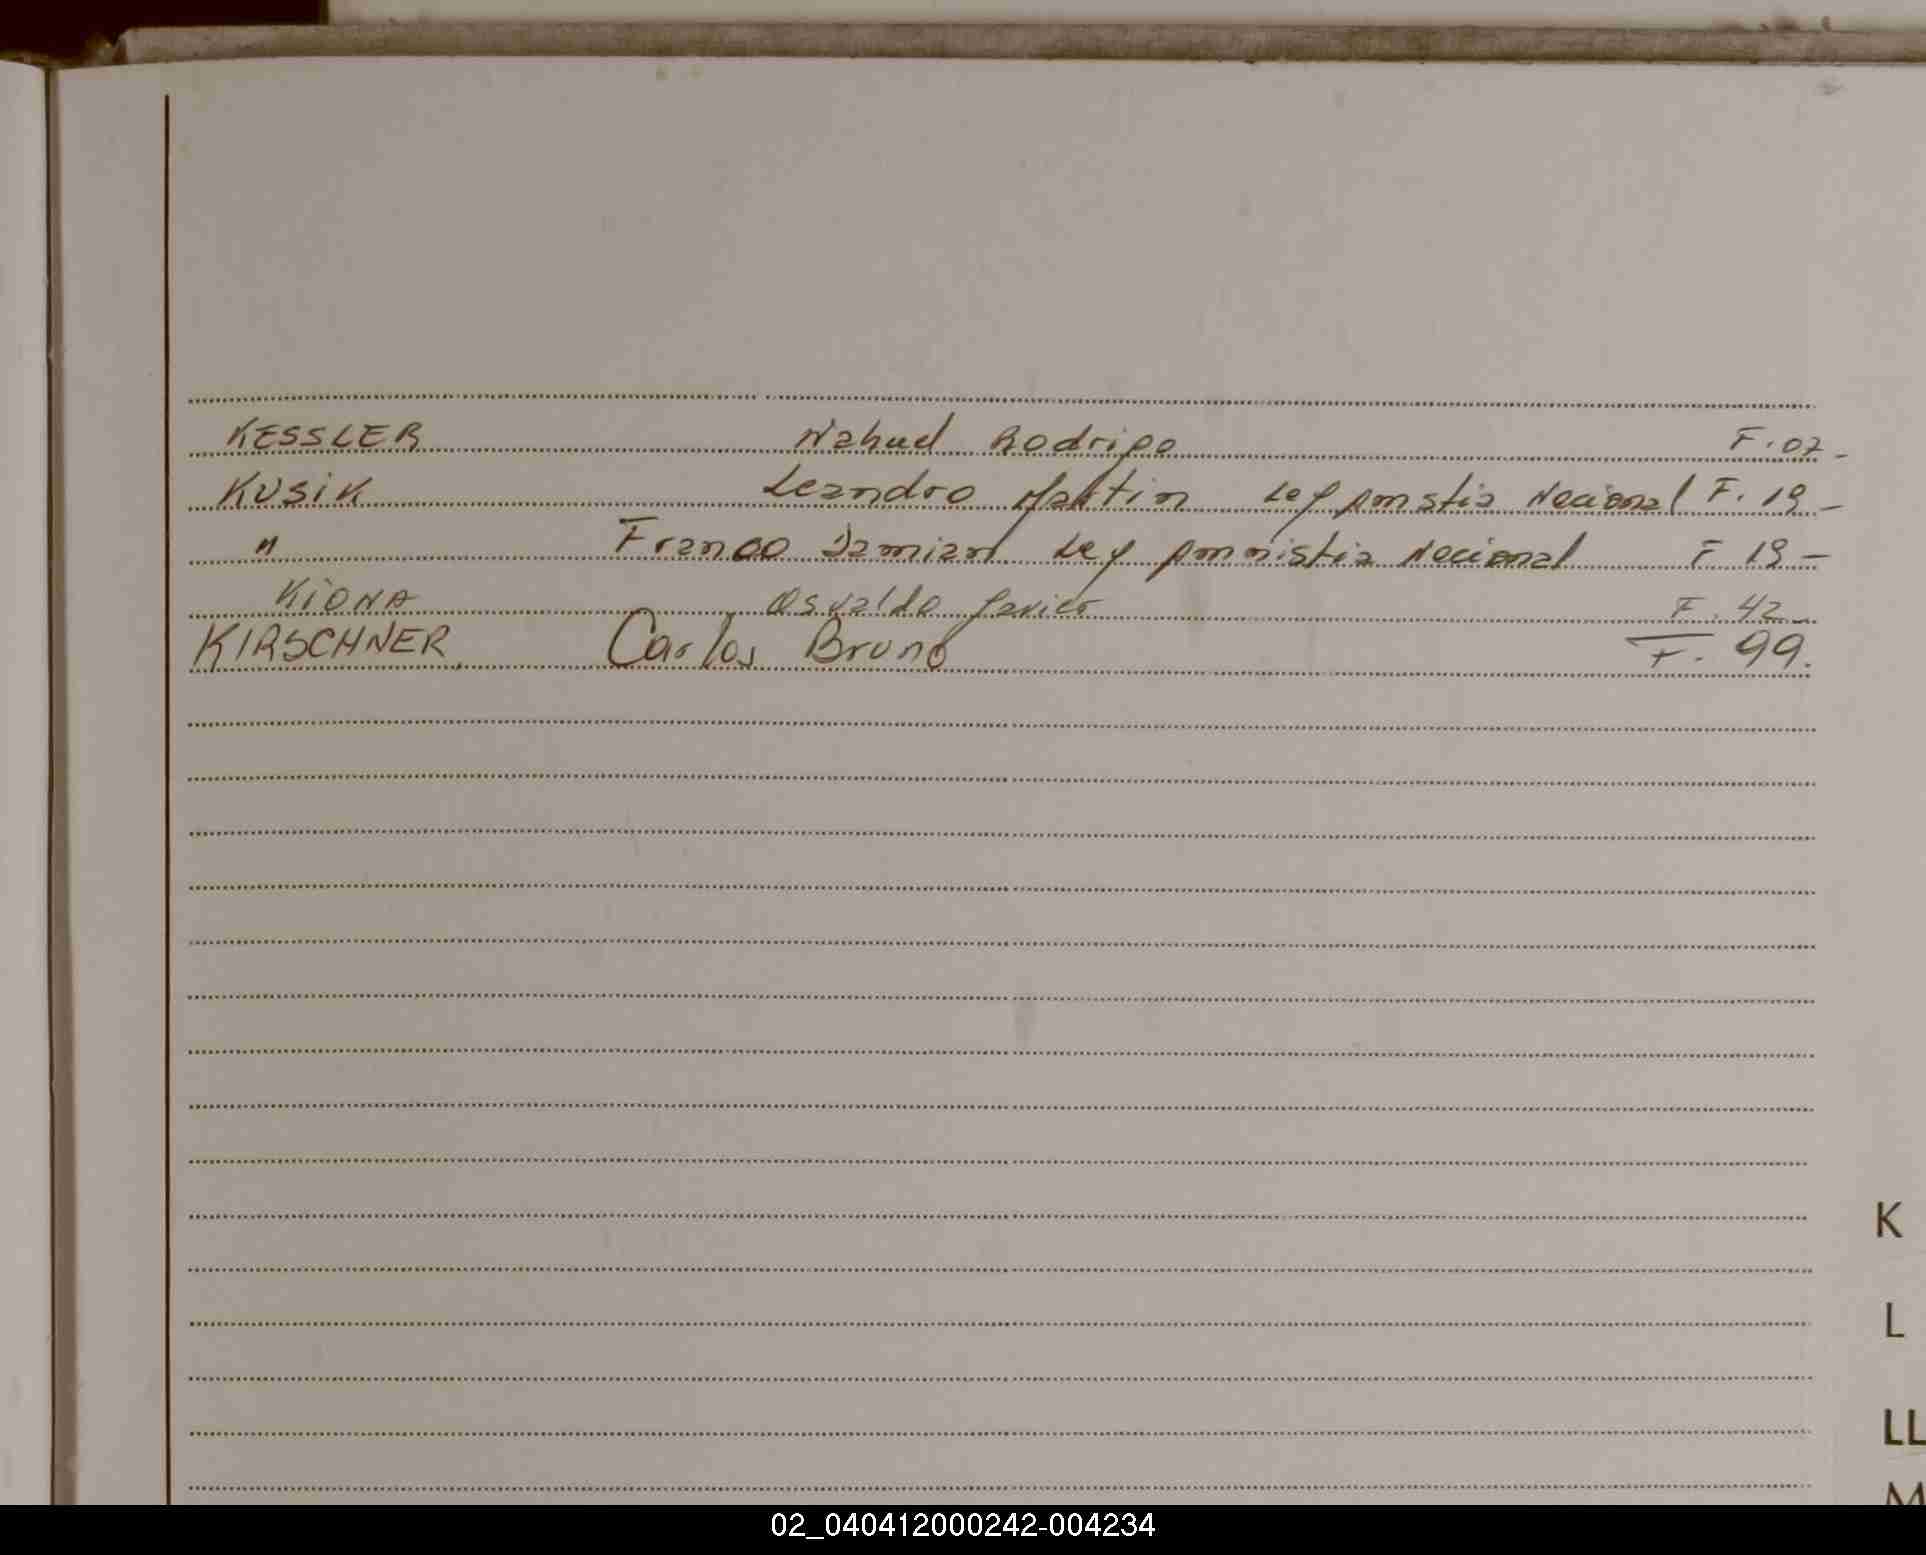 KESSLER Nahuel Rodrigo F. 07 -
KUSiK Leandro Martin Ley Amnstia Nacional F. 19 -
" Franco Damian Ley Amnistia Nacional F 19 -
KiONA Osvaldo Javier F. 42 -
KIRSCHNER, Carlos Bruno F. 99.
K
L
LL
M
02_040412000242-004234